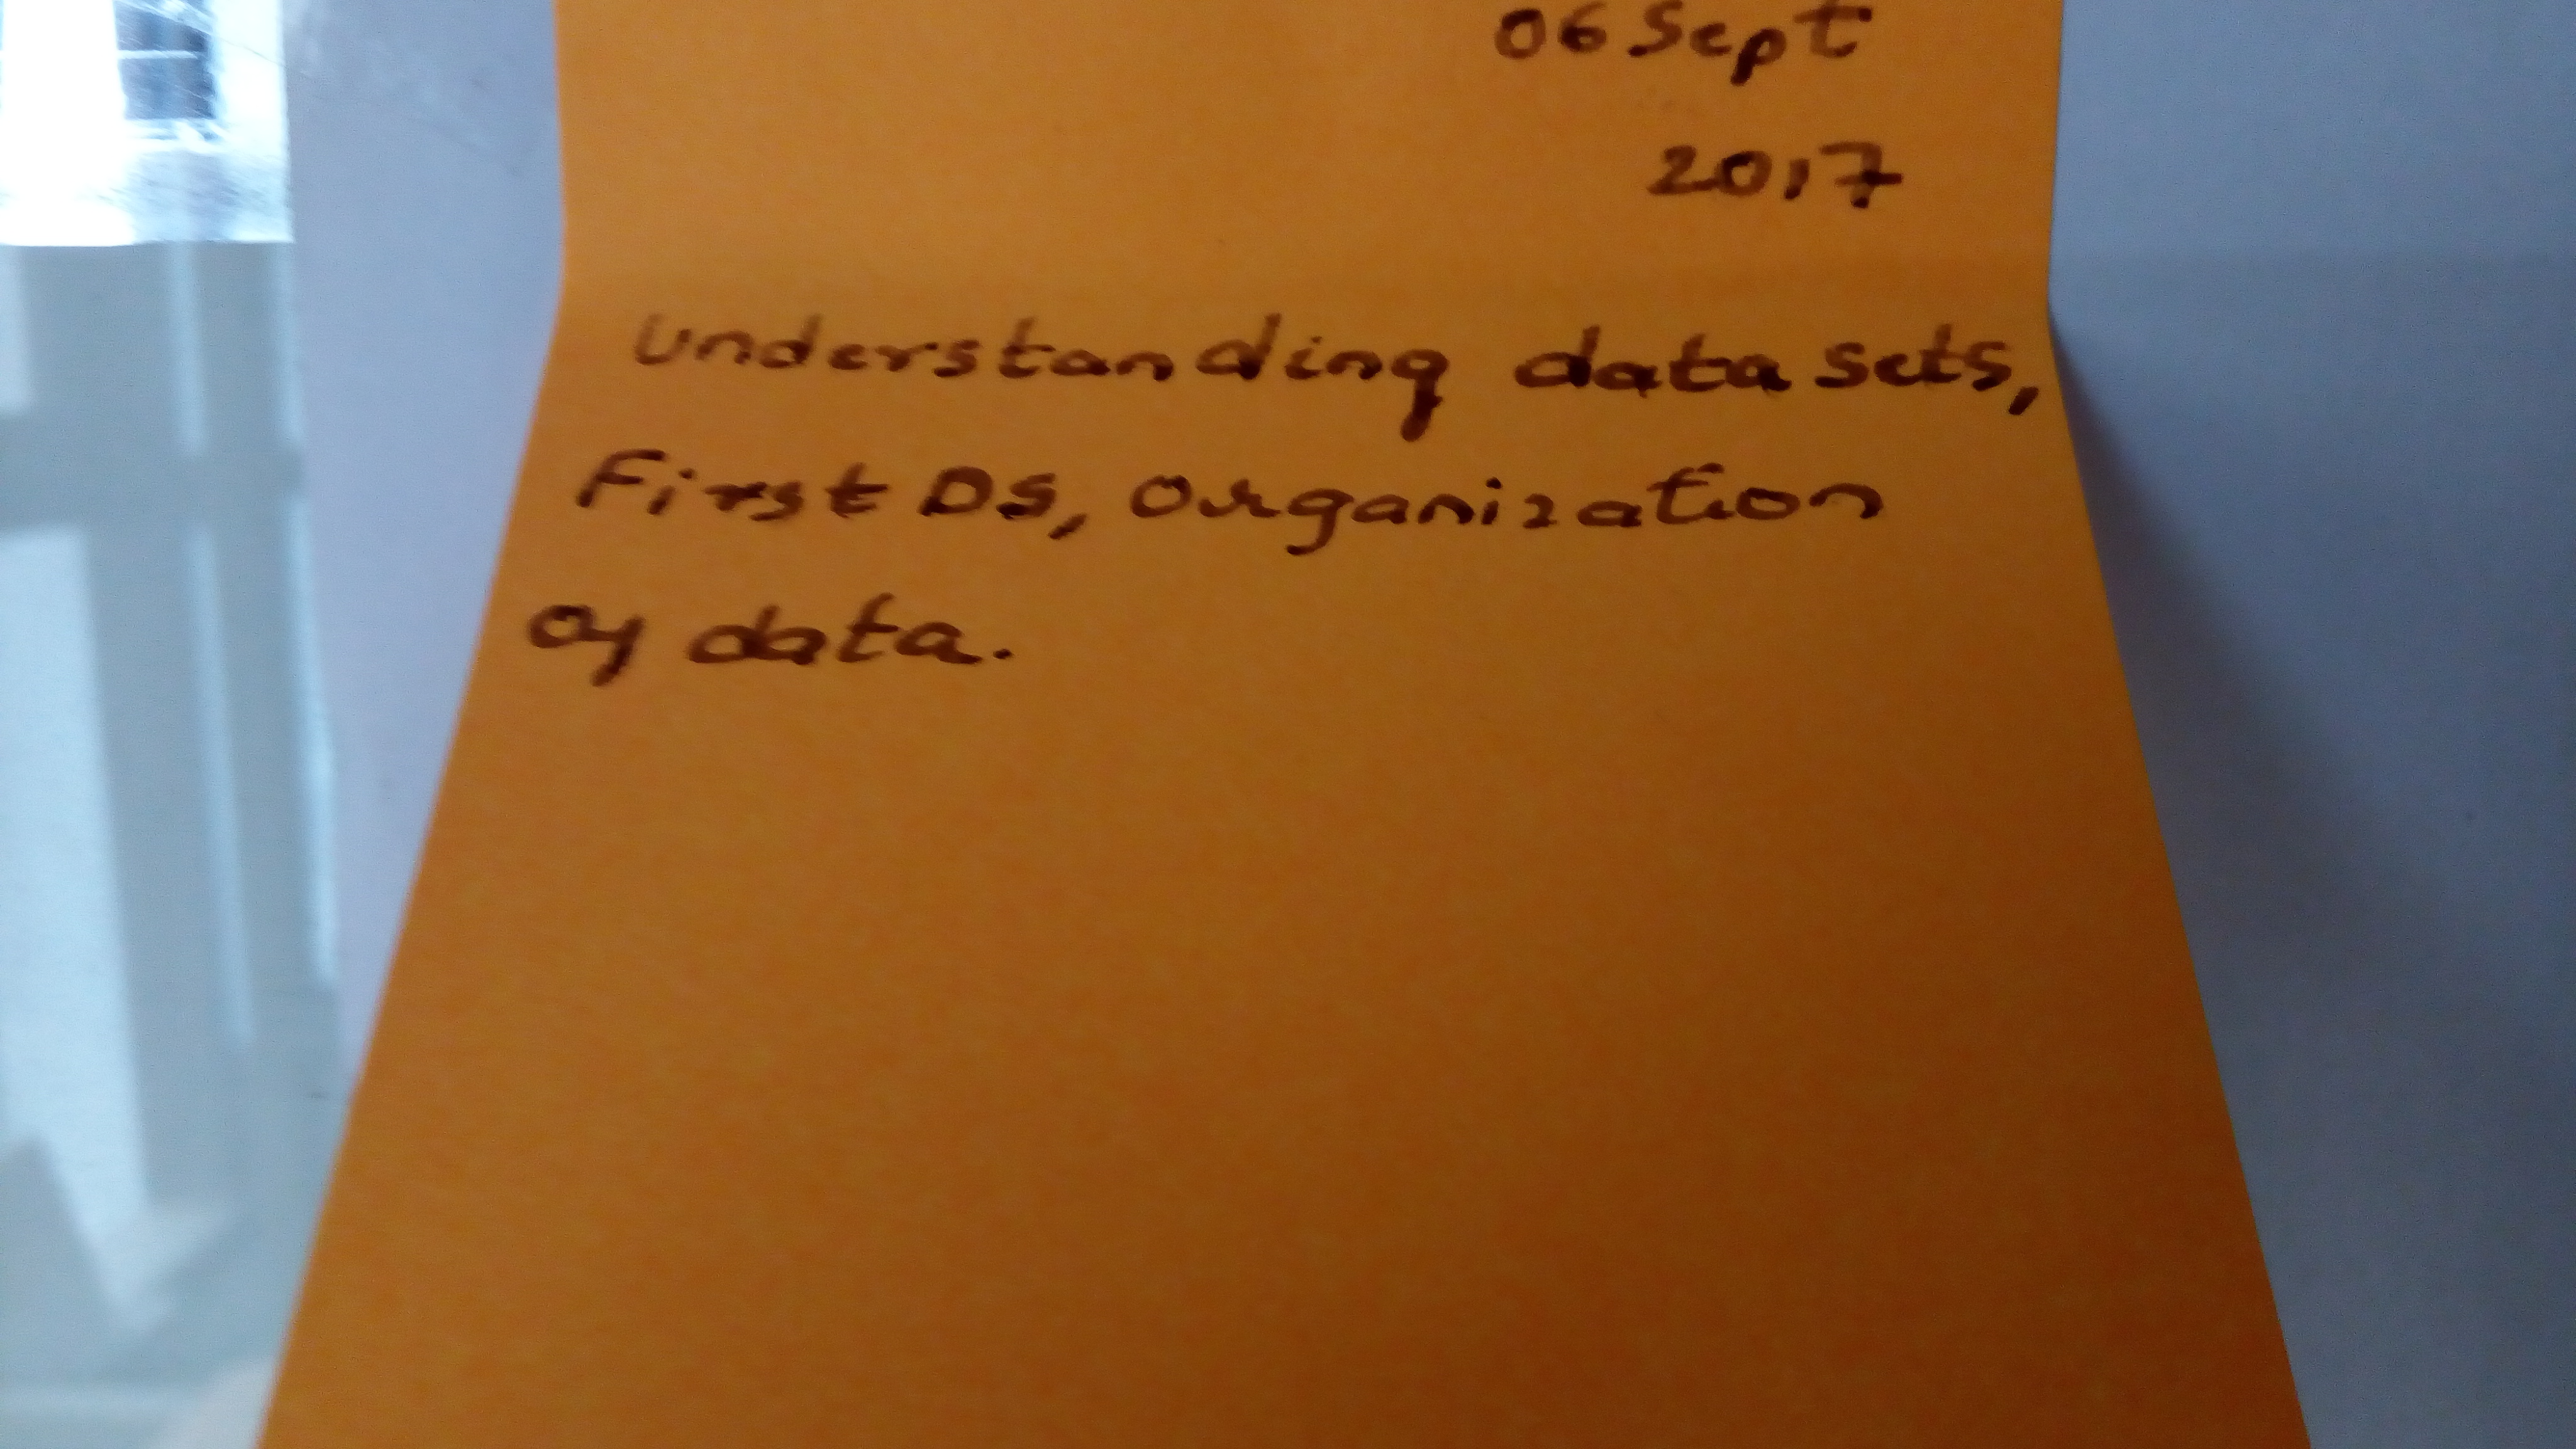 06 Sept
2017
Understanding data sets,
First DS, Organization
of data.